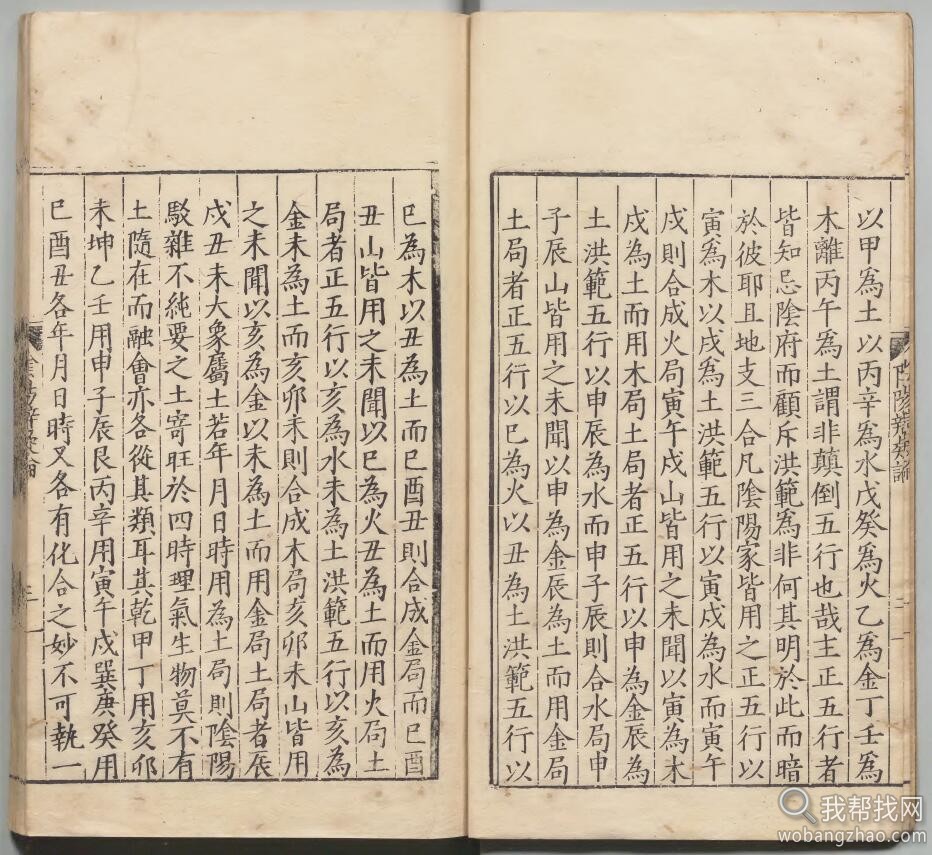 以甲為土以丙辛為水戊癸為火乙為金丁壬為
木離丙午為土謂非顛倒五行也哉主正五行者
皆知忌陰府而顧斥洪範為非何其明於此而暗
於彼耶且地支三合凡陰陽家皆用之正五行以
寅為木以戌為土洪範五行以寅戌為水而寅午
戌則合成火局寅午戌山皆用之未聞以寅為木
戌為土而用木局土局者正五行以申為金辰為
土洪範五行以申辰為水而申子辰則合水局申
子辰山皆用之未聞以申為金辰為土而用金局
土局者正五行以巳為火以丑為土洪範五行以
陰陽辯疑論
二
巳為木以丑為土而巳酉丑則合成金局而巳酉
丑山皆用之未聞以巳為火丑為土而用火局土
局者正五行以亥為水未為土洪範五行以亥為
金未為土而亥卯未則合成木局亥卯未山皆用
之未聞以亥為金以未為土而用金局土局者辰
戌丑未大象屬土若年月日時用為土局則陰陽
駁雜不純要之土寄旺於四時理氣生物莫不有
土隨在而融會亦各從其類耳其乾甲丁用亥卯
未坤乙壬用申子辰艮丙辛用寅午戌巽庚癸用
巳酉丑各年月日時又各有化合之妙不可執一
三
我帮找网
wobangzhao.com